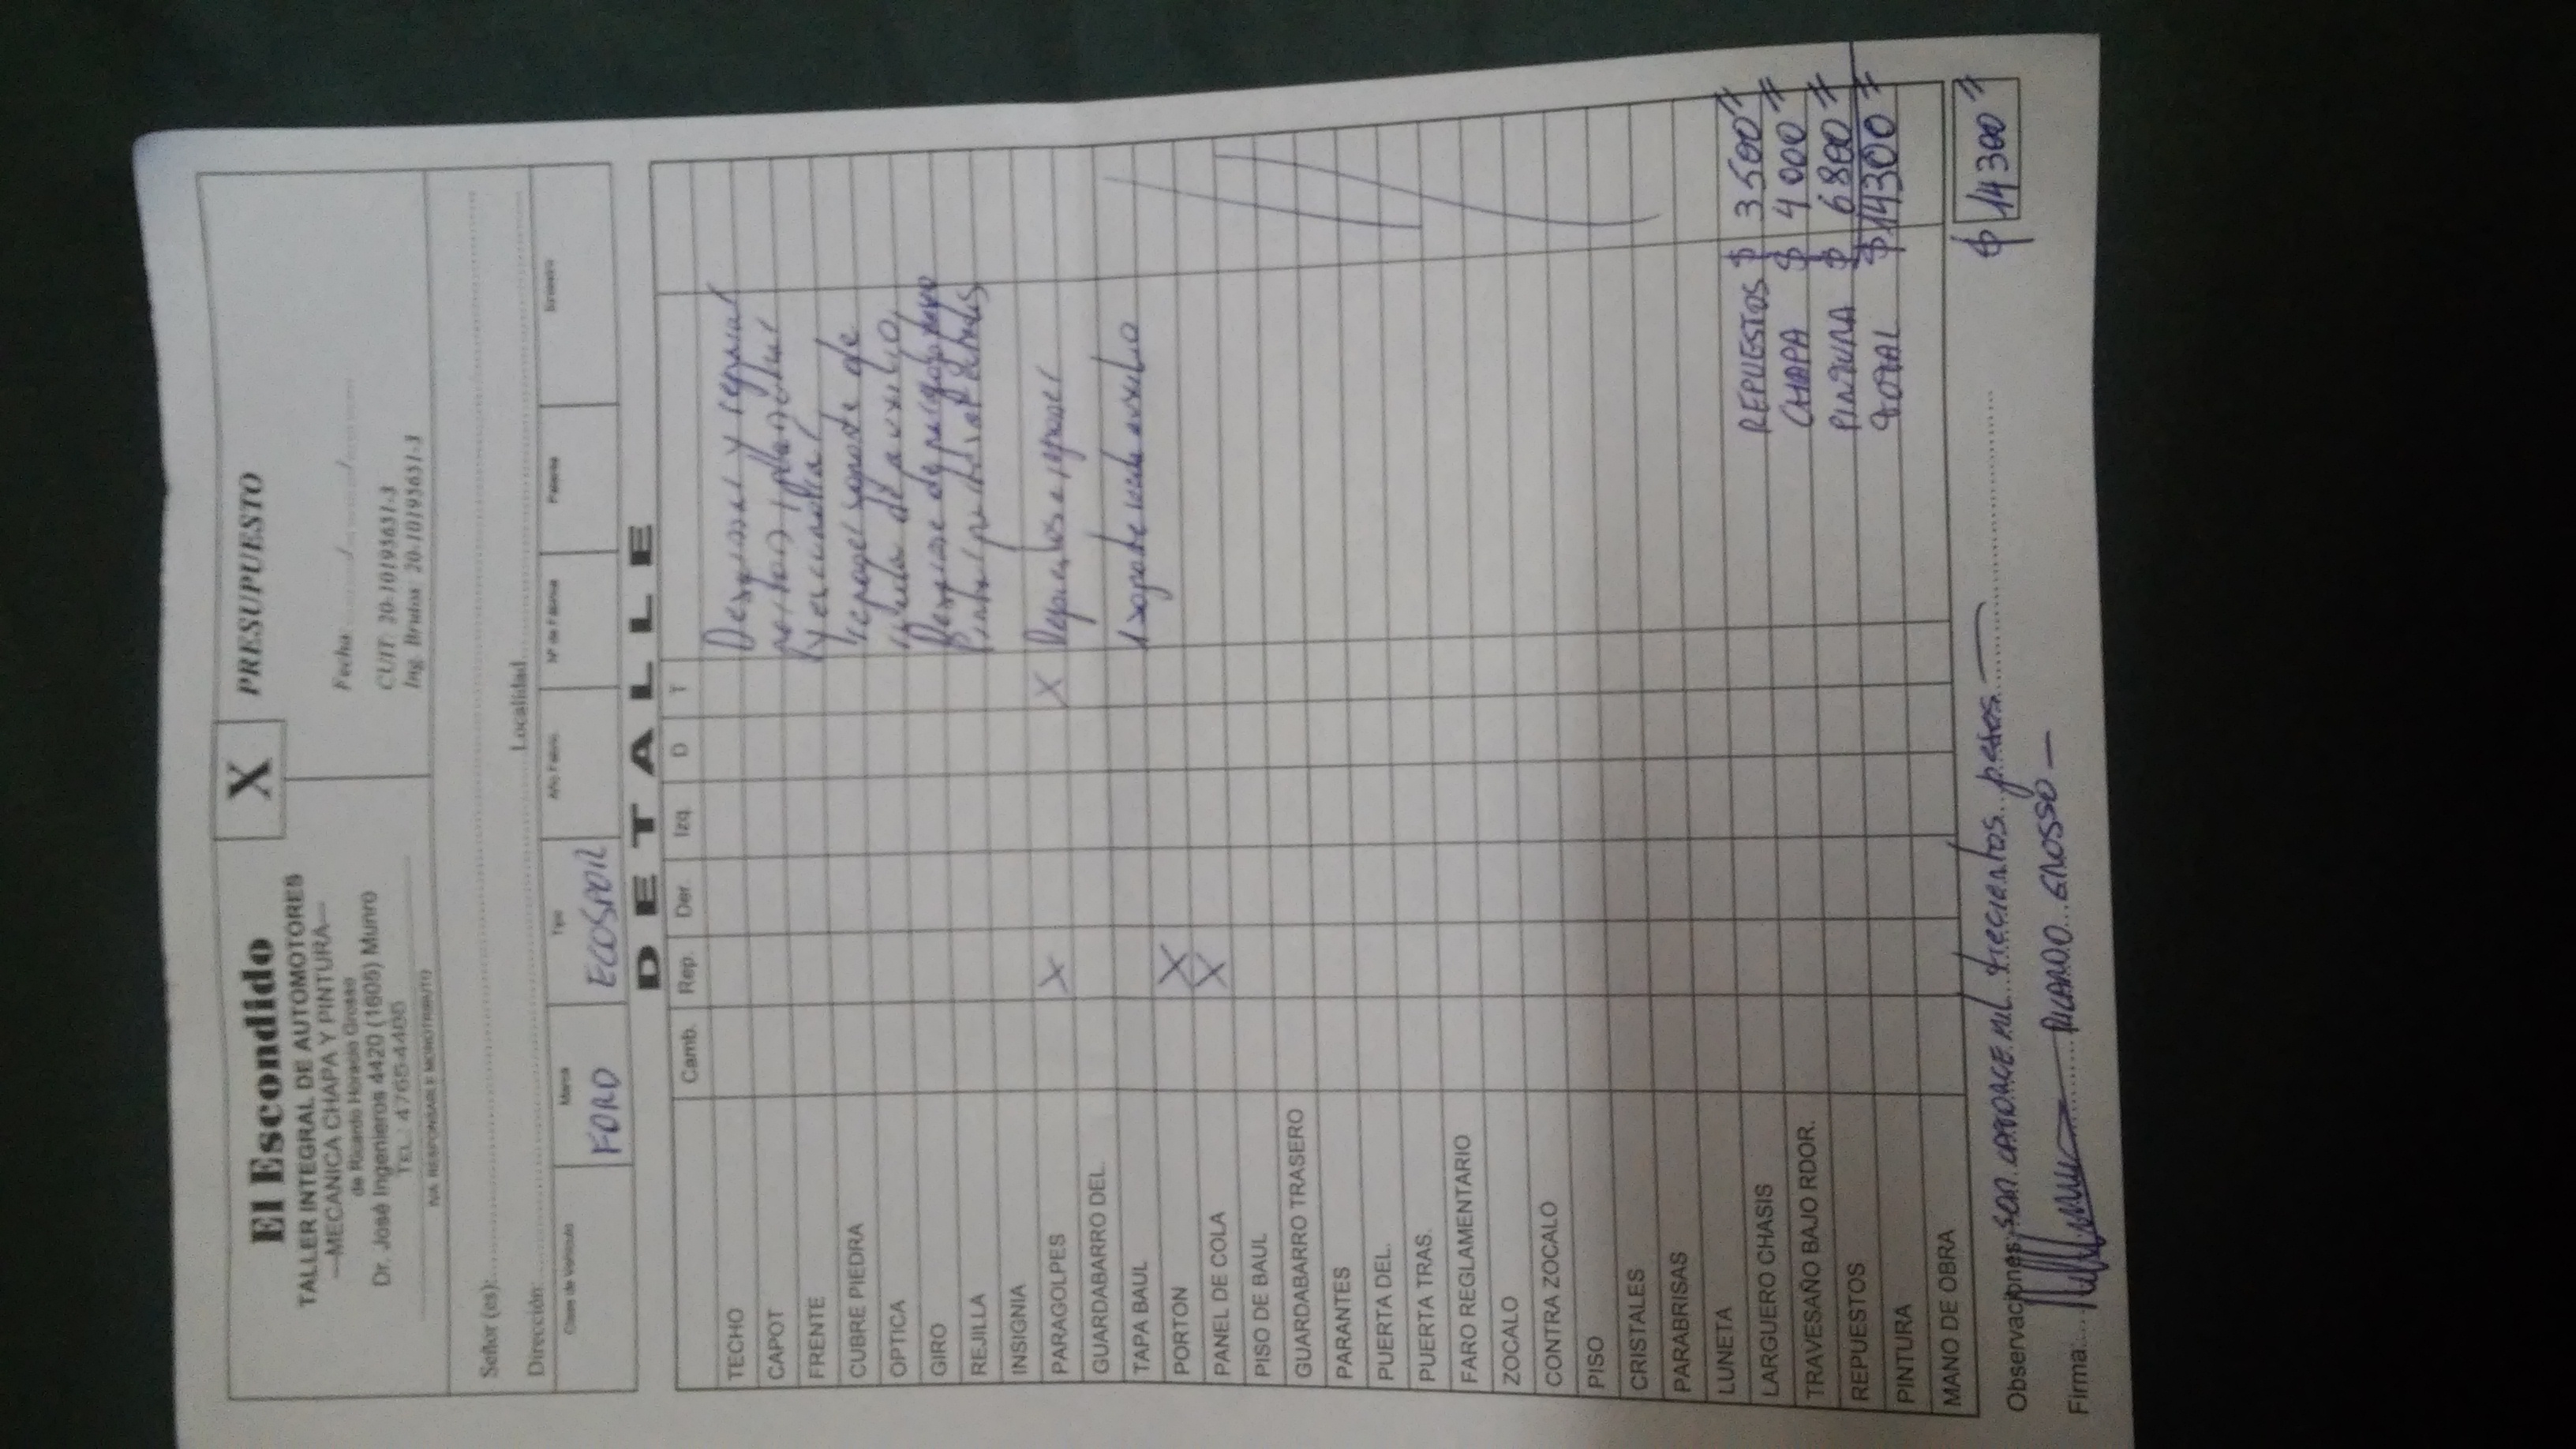 El Escondido
X
PRESUPUESTO
TALLER INTEGRAL DE AUTOMOTORES
—MECANICA CHAPA Y PINTURA—
de Ricardo Horacio Grosso
Dr. José Ingenieros 4420 (1605) Munro
TEL.: 4765-4485
IVA RESPONSABLE MONOTRIBUTO
Fecha: / /
CUIT: 20-10195651-3
Ing. Brutos: 20-10195651-3
Señor (es):
Dirección: Localidad
Clase de Vehículo Marca Tipo Año Fabric. Nº de Fábrica Patente Siniestro
FORD ECOSPOR
DETALLE
Camb. Rep. Der. Izq. D T
TECHO y reparar
CAPOT
FRENTE
CUBRE PIEDRA reponer soporte de
OPTICA rueda de auxilio,
GIRO
REJILLA
INSIGNIA
PARAGOLPES X X Repuestos a reponer
GUARDABARRO DEL.
TAPA BAUL 1 soporte rueda auxilio
PORTON X
PANEL DE COLA X
PISO DE BAUL
GUARDABARRO TRASERO
PARANTES
PUERTA DEL.
PUERTA TRAS.
FARO REGLAMENTARIO
ZOCALO
CONTRA ZOCALO
PISO
CRISTALES
PARABRISAS
LUNETA
LARGUERO CHASIS REPUESTOS $ 3500
TRAVESAÑO BAJO RDOR. CHAPA $ 4000
REPUESTOS PINTURA $ 6800
PINTURA TOTAL $ 14300
MANO DE OBRA
Observaciones: SON CATORCE MIL trecientos pesos — $ 14300
Firma: RICARDO GROSSO —